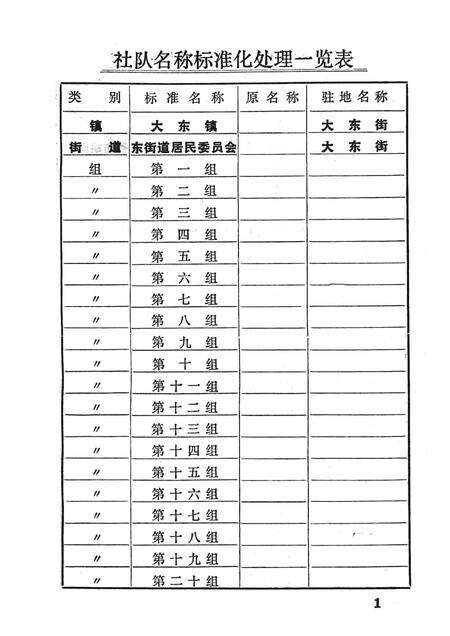 社队名称标准化处理一览表
类 别 标准名称 原名称 驻地名称
镇 大东镇 大东街
街道 东街道居民委员会 大东街
组 第一组
〃 第二组
〃 第三组
〃 第四组
〃 第五组
〃 第六组
〃 第七组
〃 第八组
〃 第九组
〃 第十组
〃 第十一组
〃 第十二组
〃 第十三组
〃 第十四组
〃 第十五组
〃 第十六组
〃 第十七组
〃 第十八组
〃 第十九组
〃 第二十组
1